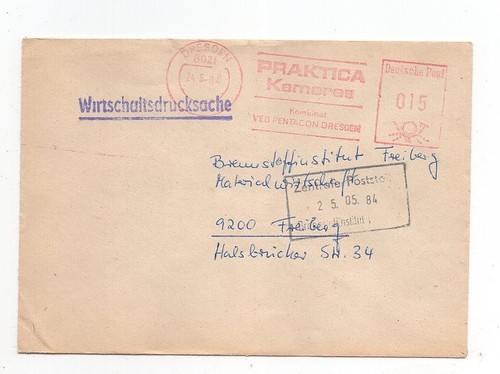 DRESDEN
8021
PRAKTICA
Kameras
Kombinat
VEB PENTACON DRESDEN
Deutsche Post
015
Wirtschaftsdrucksache
Brennstoffinstitut Freiberg
Materialwirtschaft
Zentrale Postst
25. 05. 84
9200 Freiberg
Halsbrücker Str. 34